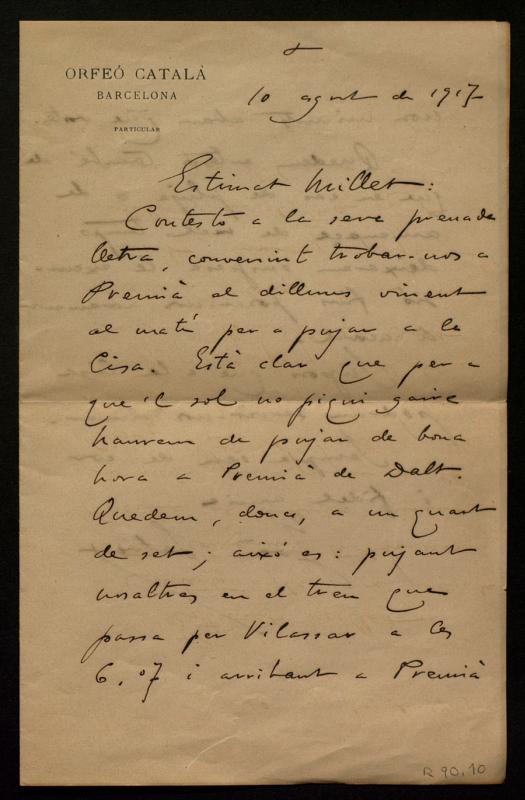 ORFEÓ CATALÀ
BARCELONA
PARTICULAR
10 agost de 1917
Estimat Millet:
Contesto a la seva preuada
lletra, convenint trobar-nos a
Premià el dilluns vinent
al matí per a pujar a la
Cisa. Està clar que per a
que 'l sol no piqui gaire
haurem de pujar de bona
hora a Premià de Dalt.
Quedem, doncs, a un quart
de set; aixó es: pujant
nosaltres en el tren que
passa per Vilassar a les
6.07 i arribant a Premià
R 90.10